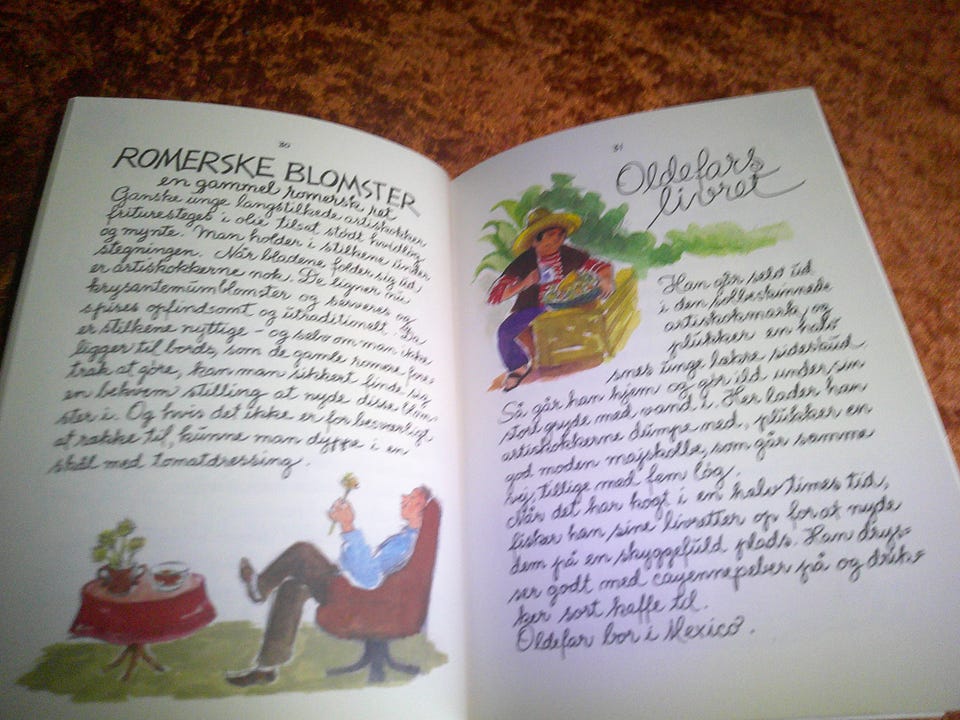 30
ROMERSKE BLOMSTER
en gammel romersk ret
Ganske unge langstilkede artiskokker
frituresteges i olie tilsat stødt hvidløg
og mynte. Man holder i stilkene under
stegningen. Når bladene folder sig ud,
er artiskokkerne nok. De ligner nu
krysantemumblomster og serveres og
spises opfindsomt og utraditionelt. Da
er stilkene nyttige - og selv om man ikke
ligger til bords, som de gamle romere fore-
trak at gøre, kan man sikkert finde sig
en bekvem stilling at nyde disse blom-
ster i. Og hvis det ikke er for besværligt
at række til, kunne man dyppe i en
skål med tomatdressing.
31
Oldefars
livret
Han går selv ud
i den solbeskinnede
artiskokmark, og
plukker en halv
snes unge lækre sideskud.
Så går han hjem og gør ild under sin
store gryde med vand i. Her lader han
artiskokkerne dumpe ned, plukker en
god moden majskolbe, som går samme
vej, tillige med fem løg.
Når det har kogt i en halv times tid,
fisker han sine livretter op for at nyde
dem på en skyggefuld plads. Han drys-
ser godt med cayennepeber på og drik-
ker sort kaffe til.
Oldefar bor i Mexico.